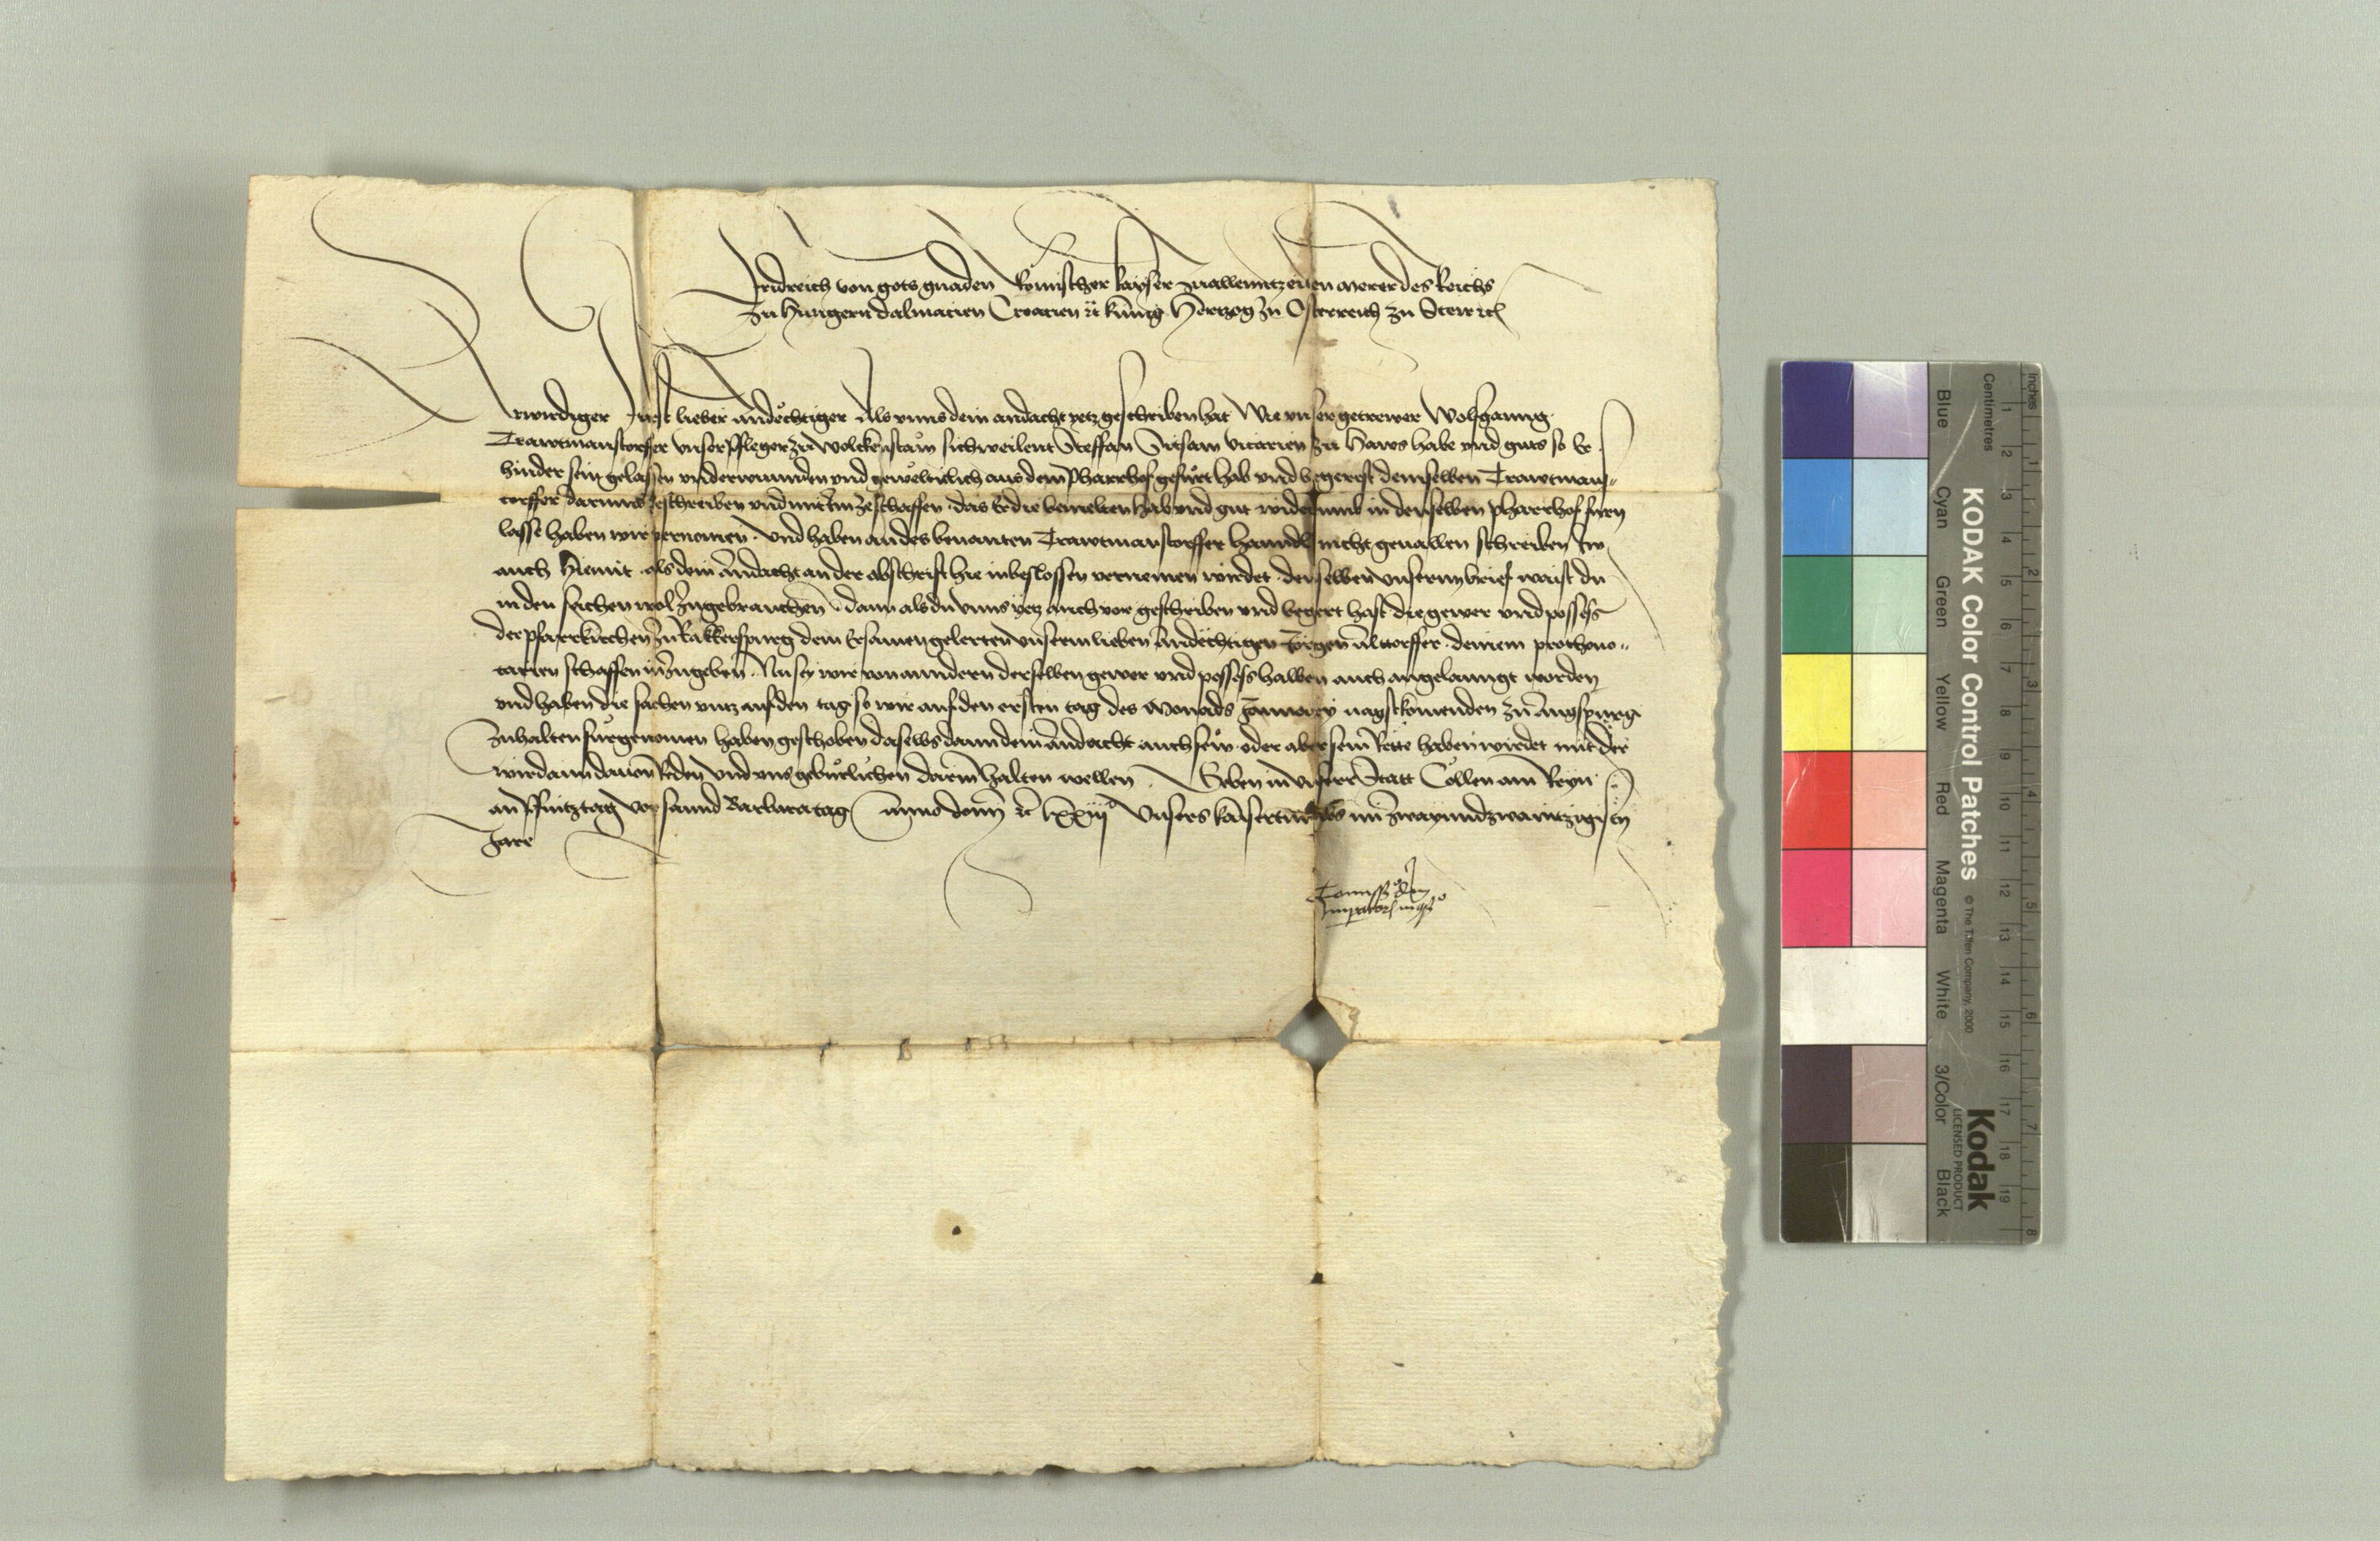 Fridreich von gots gnaden Romischer kayser zuallenntzeiten merer des Reichs
zu Hungern Dalmacien Croacien ꝛc kunig Hertzog zu Osterreich zu Steir ꝛc
Erwirdiger Fürst lieber andechtiger Als vnns dein andacht yetz geschriben hat Wie vnser getrewer Wolfganng
Trawtmanstorffer vnser Phleger zu Wolckenstain sich weilent Steffan Vitzam vicarien zu Haws habe vnd guts so Er
hinder sein gelassen vnderwunnden vnd gewelticlich aus dem Pharrhof gefurt hab vnd begerest demselben Trawtmans-
torffer darumb zeschreiben vnd mit Im zeschaffen das Er die bemelten hab vnd gut widerumb in denselben pharrhof furn
lasse haben wir vernomen. Vnd haben an des benanten Trawtmanstorffer hanndl nicht geuallen schreiben Im
auch hiemit als dein Andacht an der abschrift hie inbeslossen vernemen wirdet denselben vnsern brief waist du
in den sachen wol zugebrauchen. dann als du vnns yetz auch vor geschriben vnd begert hast die gewer vnd possess
der pfarrkirchen zu Rakkerspurg dem Ersamen gelerten vnserm lieben Andechtigen Jörgen Altorffer deinem prothono-
tarien schaffen inzugeben. Nu sey wir von anndern derselben gewer vnd possess halben auch angelanngt worden
vnd haben die sachen vntz auf den tag so wir auf den ersten tag des Monads Jannuary nagstkomenden zu Augspurg
zuhalten furgenomen haben geschoben daselbs dann dein Andacht auch sein oder aber sein Rete haben wirdet mit der
wir dann dauon Reden vnd vns geburlichen darinn halten wellen. Geben in vnser Statt Cöllen am Reyn
an Phintztag vor sannd Barbara tag Anno domini ꝛc lxxiijo Vnsers kaisertumbs im zwayundzwaintzigisten
Jare
Commissio domini
Imperatoris in consilio